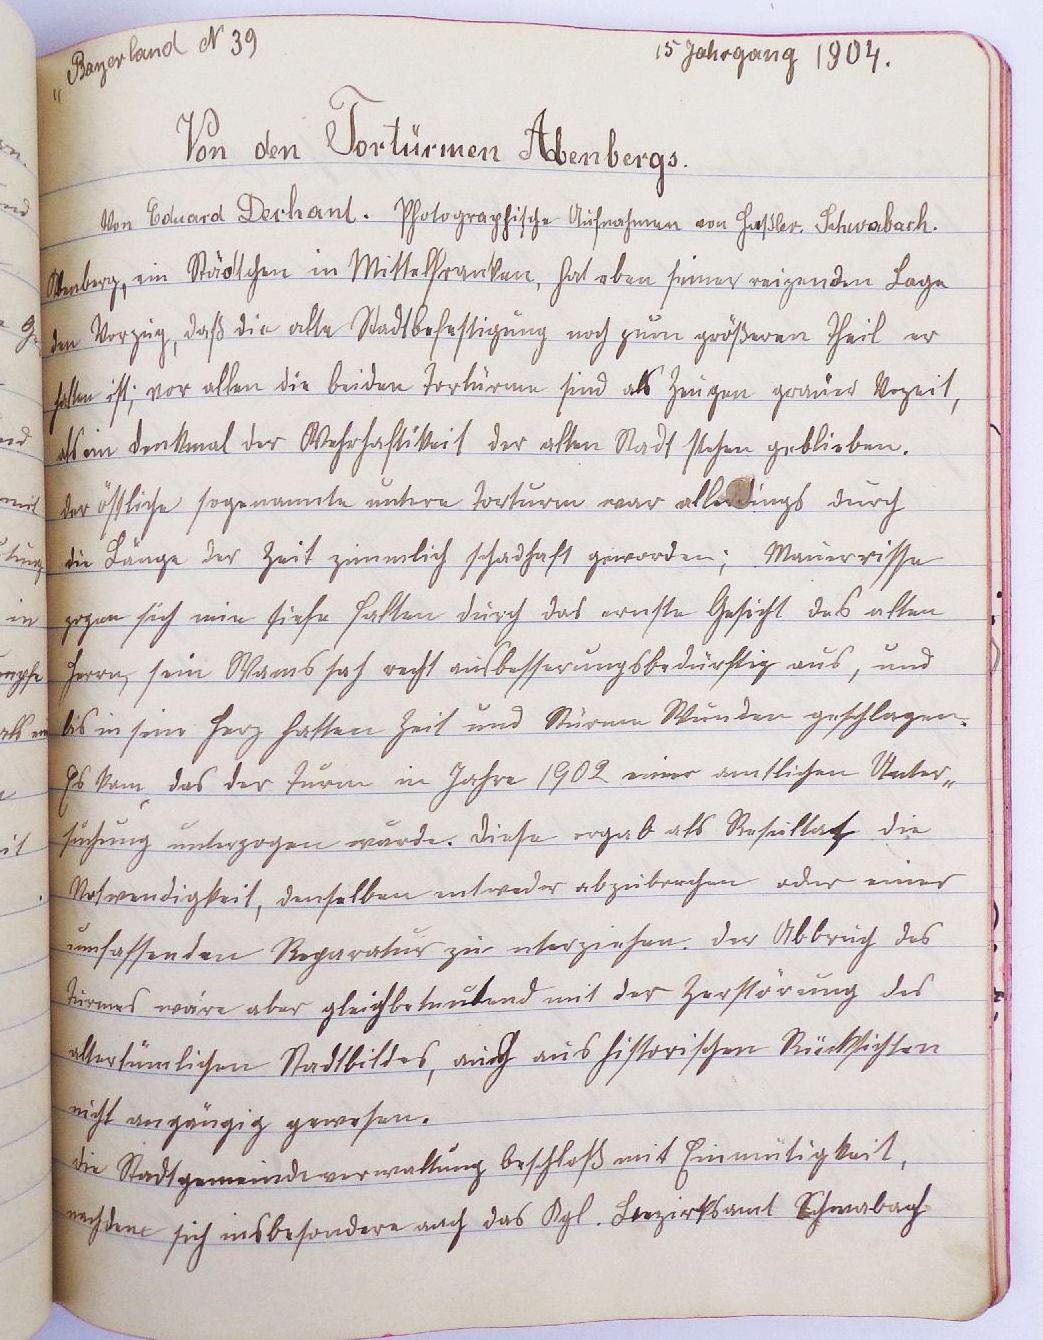 "Bayerland N 39
15 Jahrgang 1904.
Von den Tortürmen Abenbergs.
Von Eduard Dechant. Photographische Aufnahmen von Haßler. Schwabach.
Abenberg, ein Städtchen in Mittelfranken, hat eben seiner reizenden Lage
den Vorzug, daß die alte Stadtbefestigung noch zum größeren Theil er
halten ist; vor allen die beiden Tortürme sind als Zeugen grauer Vozeit,
als ein Denkmal der Wehrhaftikeit der alten Stadt stehen geblieben.
der östliche sogenannte untere Torturm war allerdings durch
die Länge der Zeit zimmlich schadhaft geworden; Mauerrisse
zogen sich wie tiefe Falten durch das ernste Gesicht des alten
Herrn, sein Wams sah recht ausbesserungsbedürftig aus, und
bis in sein Herz hatten Zeit und Stürme Wunden geschlagen.
Es kam, das der Turm in Jahre 1902 einer amtlichen Unter„
suchung unterzogen wurde. Diese ergab als Resultat die
Notwendigkeit, denselben entweder abzubrechen oder einer
umfassenden Reparatur zu nterziehen. der Abbruch des
Turmes wäre aber gleichbeteutend mit der Zerstörung des
altertümlichen Stadtbildes, auch aus historischen Rücksichten
nicht angängig gewesen.
die Stadtgemeindeverwaltung beschloß mit Einmütigkeit,
nachdem sich insbesondere auch das Kgl. Bezirksamt Schwabach